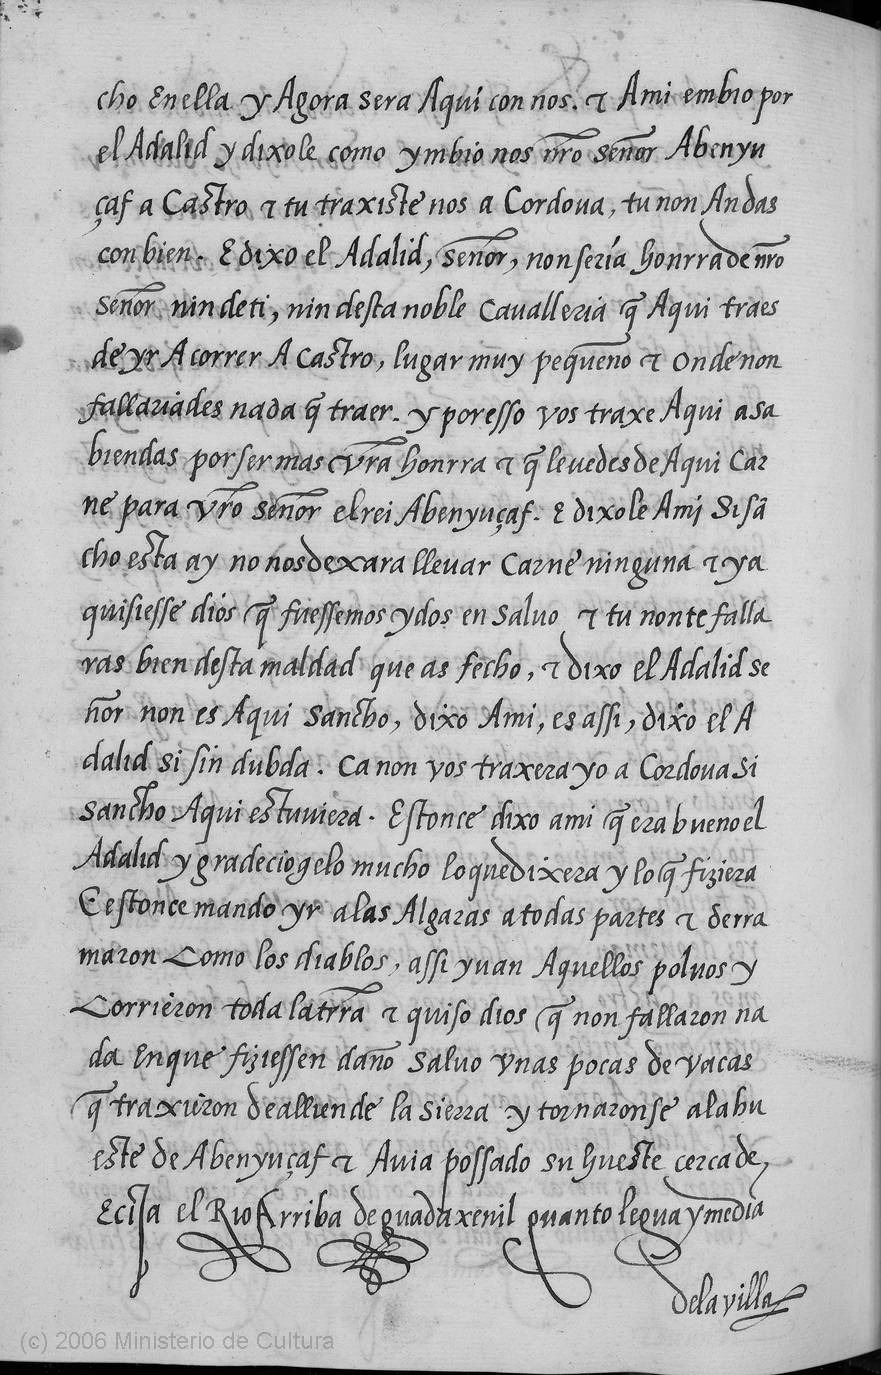 cho En ella y Agora sera Aquí con nos. τ Ami embio por
el Adalid y dixole como ymbio nos nr̃o señor Abenyu
çaf a Castro τ tu traxiste nos a Cordoua, tu non Andas
con bien. E dixo el Adalid, señor, non sería honrra de nr̃o
señor nin de ti, nin desta noble Cavalleria q̃ Aqui traes
de yr A correr A Castro, lugar muy pequeno τ onde non
fallariades nada q̃ traer. y por esso vos traxe Aqui a sa
biendas por ser mas vr̃a honrra τ q̃ levedes de Aqui Car
ne para vr̃o señor el rei Abenyuçaf. E dixole Ami Si sã
cho esta ay no nos dexara lleuar Carne ninguna τ ya
quisiesse diós q̃ fuessemos ydos en salvo τ tu non te falla
ras bien desta maldad que as fecho, τ dixo el Adalid se
ñor non es Aqui Sancho, dixo Ami, es assi, dixo el A
dalid si sin dubda. Ca non vos traxera yo a Cordoua Si
Sancho Aqui estuuiera. Estonce dixo ami q̃ era bueno el
Adalid y gradeciogelo mucho lo que dixera y lo q̃ fiziera
E estonce mando yr a las Algaras a todas partes τ derra
maron Como los diablos, assi yuan Aquellos poluos y
Corrieron toda la trr̃a τ quiso dios q̃ non fallaron na
da En que fiziessen daño salvo vnas pocas de vacas
q̃ traxieron de alliende la sierra y tornaronse a la hu
este de Abenyuçaf τ Avia possado su hueste cerca de
Ecija el Rio Arriba de guadaxenil quanto legua y media
de la villa
(c) 2006 Ministerio de Cultura